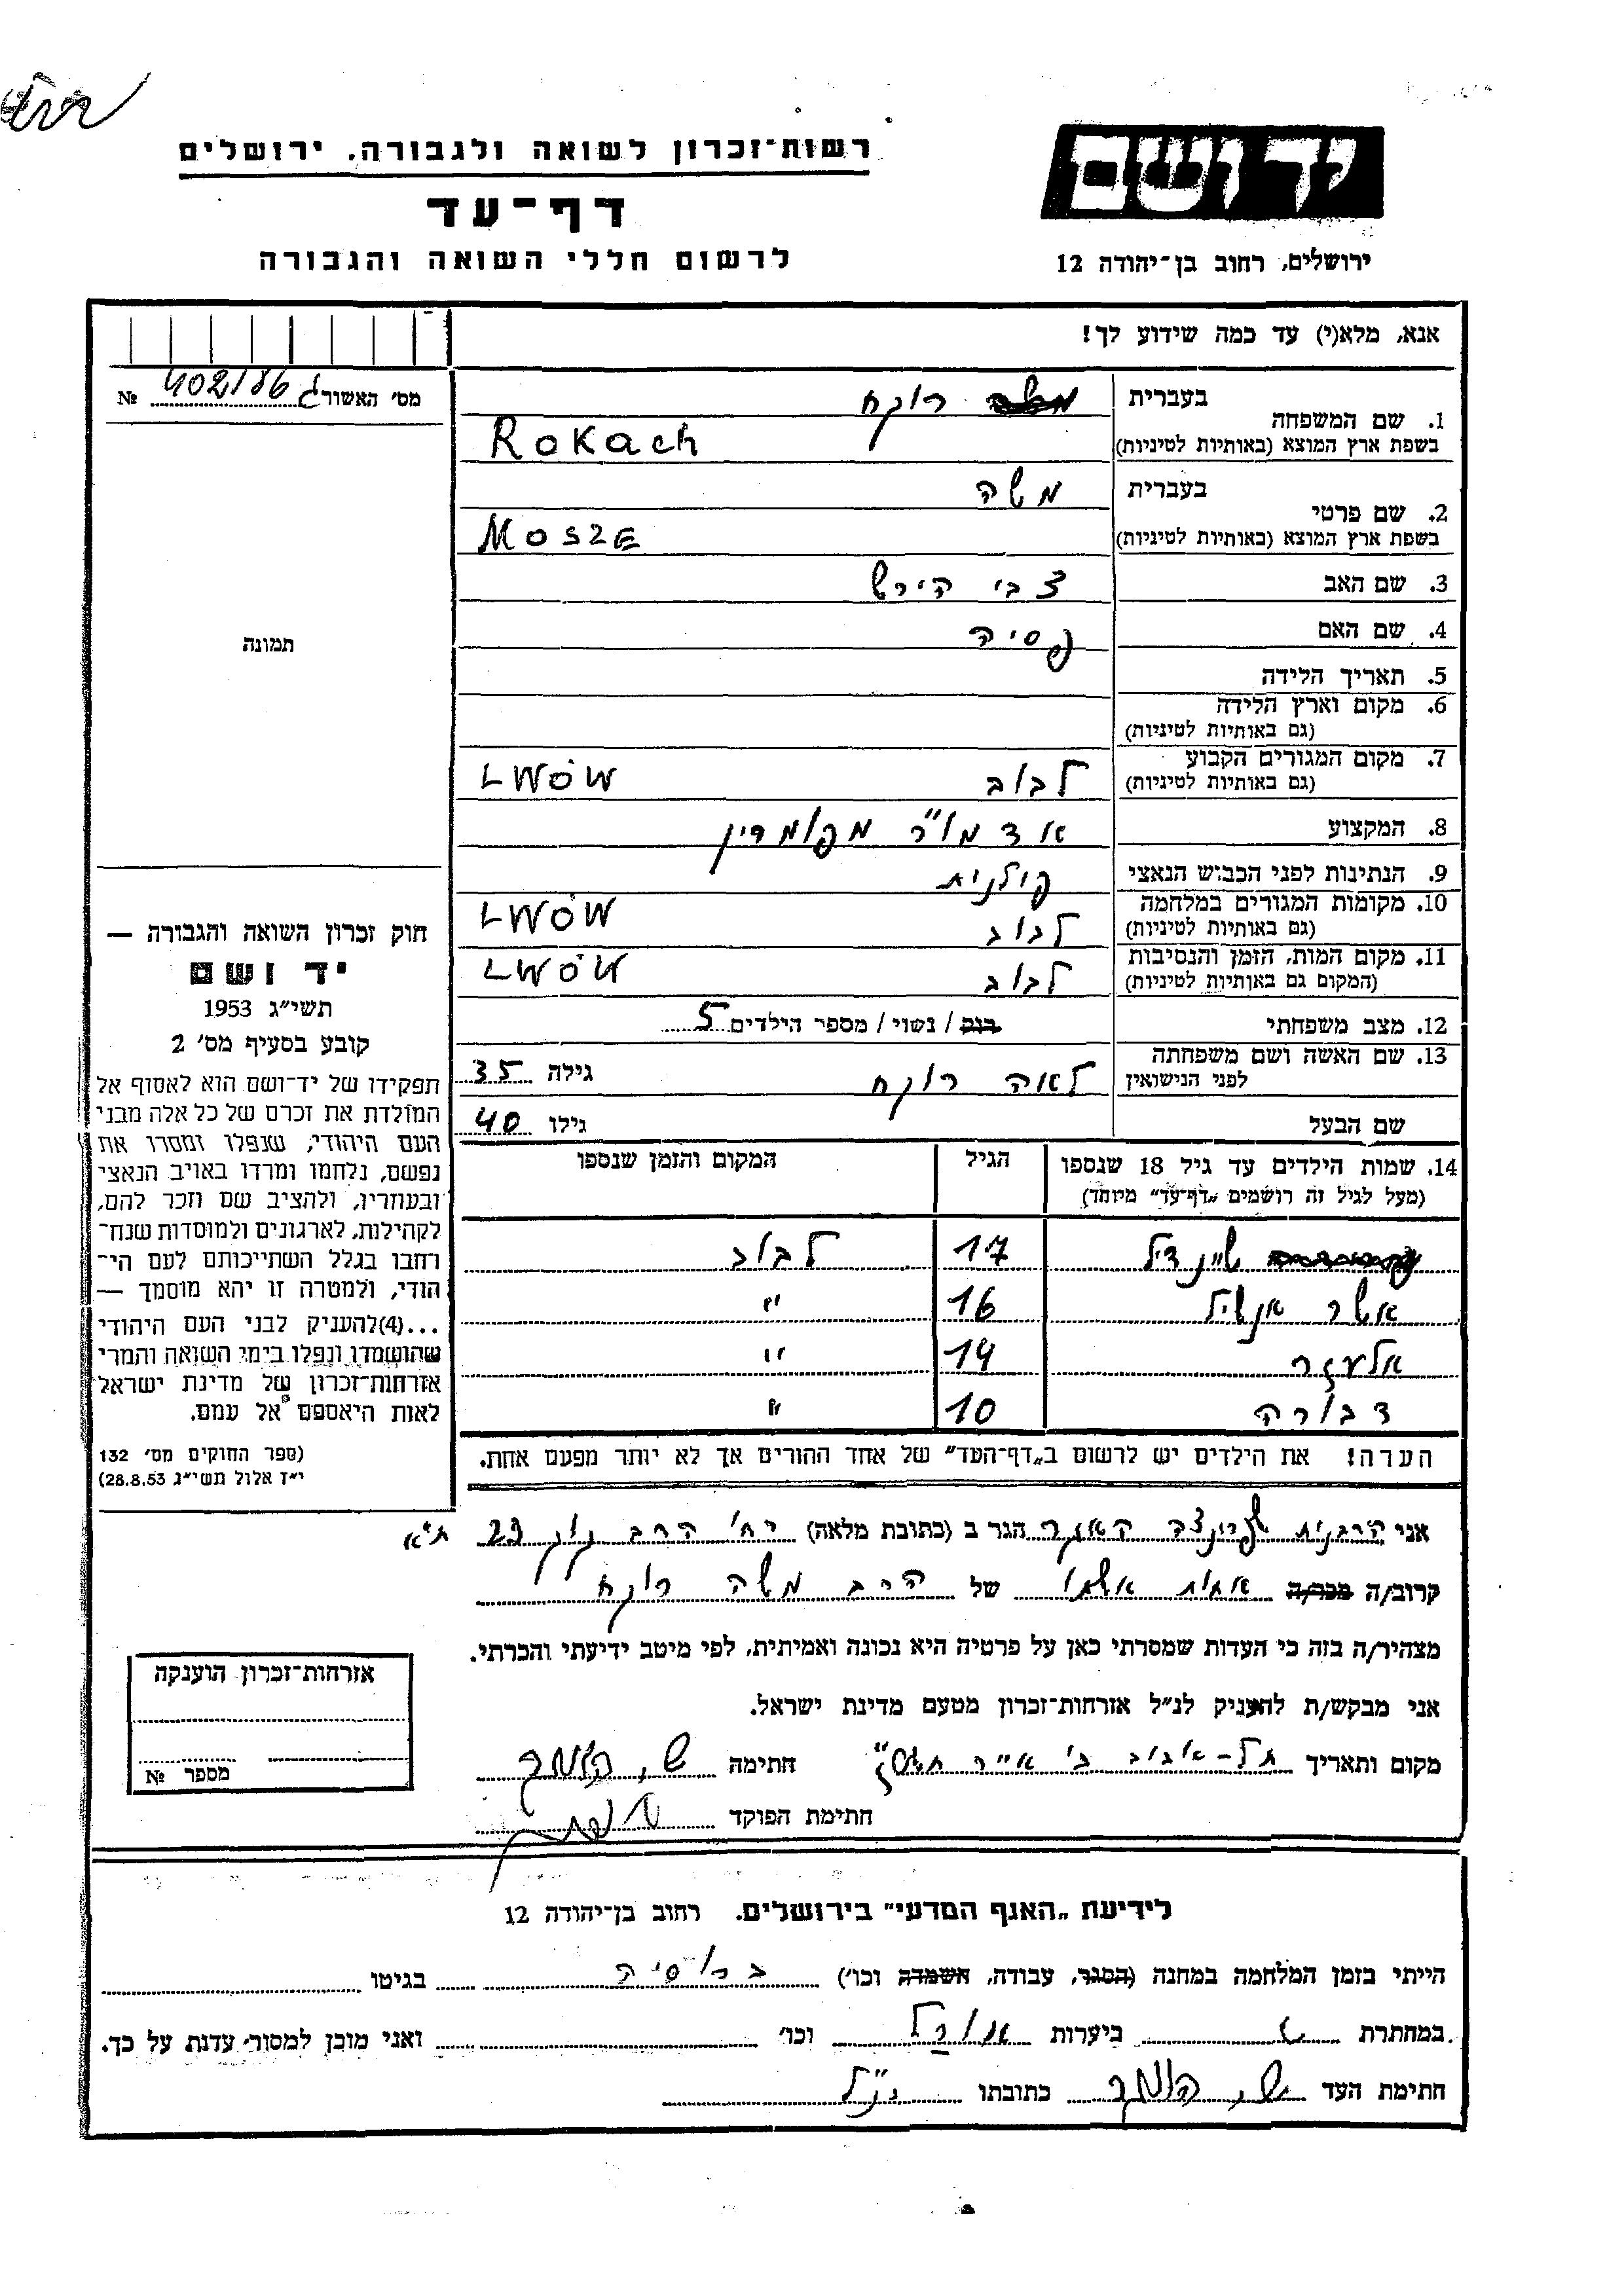 ידושם
רשות־זכרון לשואה ולגבורה, ירושלים
דף־עד
לרשום חללי השואה והגבורה
ירושלים, רחוב בן־יהודה 12
אנא, מלא(י) עד כמה שידוע לך!
מס׳ האשור ג 402186 №
תמונה
1. שם המשפחה
בעברית רוקח
בשפת ארץ המוצא (באותיות לטיניות) Rokach
2. שם פרטי
בעברית משה
בשפת ארץ המוצא (באותיות לטיניות) MOSZE
3. שם האב צבי הירש
4. שם האם פסיה
5. תאריך הלידה
6. מקום וארץ הלידה
(גם באותיות לטיניות)
7. מקום המגורים הקבוע
(גם באותיות לטיניות) לבוב LWÓW
8. המקצוע אדמו״ר
9. הנתינות לפני הכבוש הנאצי פולנית
10. מקומות המגורים במלחמה
(גם באותיות לטיניות) לבוב LWÓW
11. מקום המות, הזמן והנסיבות
(המקום גם באותיות לטיניות) לבוב LWÓW
12. מצב משפחתי רווק / נשוי / מספר הילדים 5
13. שם האשה ושם משפחתה
לפני הנישואין לאה רוקח גילה 35
שם הבעל גילו 40
14. שמות הילדים עד גיל 18 שנספו הגיל המקום והזמן שנספו
(מעל לגיל זה רושמים „דף־עד״ מיוחד)
שיינדיל 17 לבוב
אשר אנשיל 16 "
אלעזר 14 "
דבורה 10 "
הערה! את הילדים יש לרשום ב„דף־העד״ של אחד ההורים אך לא יותר מפעם אחת.
חוק זכרון השואה והגבורה —
יד ושם
תשי״ג 1953
קובע בסעיף מס׳ 2
תפקידו של יד־ושם הוא לאסוף אל
המולדת את זכרם של כל אלה מבני
העם היהודי, שנפלו ומסרו את
נפשם, נלחמו ומרדו באויב הנאצי
ובעוזריו, ולהציב שם וזכר להם,
לקהילות, לארגונים ולמוסדות שנח־
רחבו בגלל השתייכותם לעם הי־
הודי, ולמטרה זו יהא מוסמך —
...(4)להעניק לבני העם היהודי
שהושמדו ונפלו בימי השואה והמרי
אזרחות־זכרון של מדינת ישראל
לאות היאספם אל עמם.
(ספר החוקים מס׳ 132
י״ז אלול תשי״ג 28.8.53)
אני הרבנית הגר ב (כתובת מלאה) רח׳ הרב קוק 23 ת״א
קרוב/ה מכר/ה אחות אשתו של הרב משה רוקח
מצהיר/ה בזה כי העדות שמסרתי כאן על פרטיה היא נכונה ואמיתית, לפי מיטב ידיעתי והכרתי.
אני מבקש/ת להעניק לנ״ל אזרחות־זכרון מטעם מדינת ישראל.
מקום ותאריך תל-אביב אייר חתימה
חתימת הפוקד
אזרחות־זכרון הוענקה
מספר №
לידיעת „האגף המדעי״ בירושלים, רחוב בן־יהודה 12
הייתי בזמן המלחמה במחנה (הסגר, עבודה, השמדה וכו׳) ברוסיה בגיטו
במחתרת ביערות אורל וכו׳ ואני מוכן למסור עדות על כך.
חתימת העד כתובתו כנ״ל